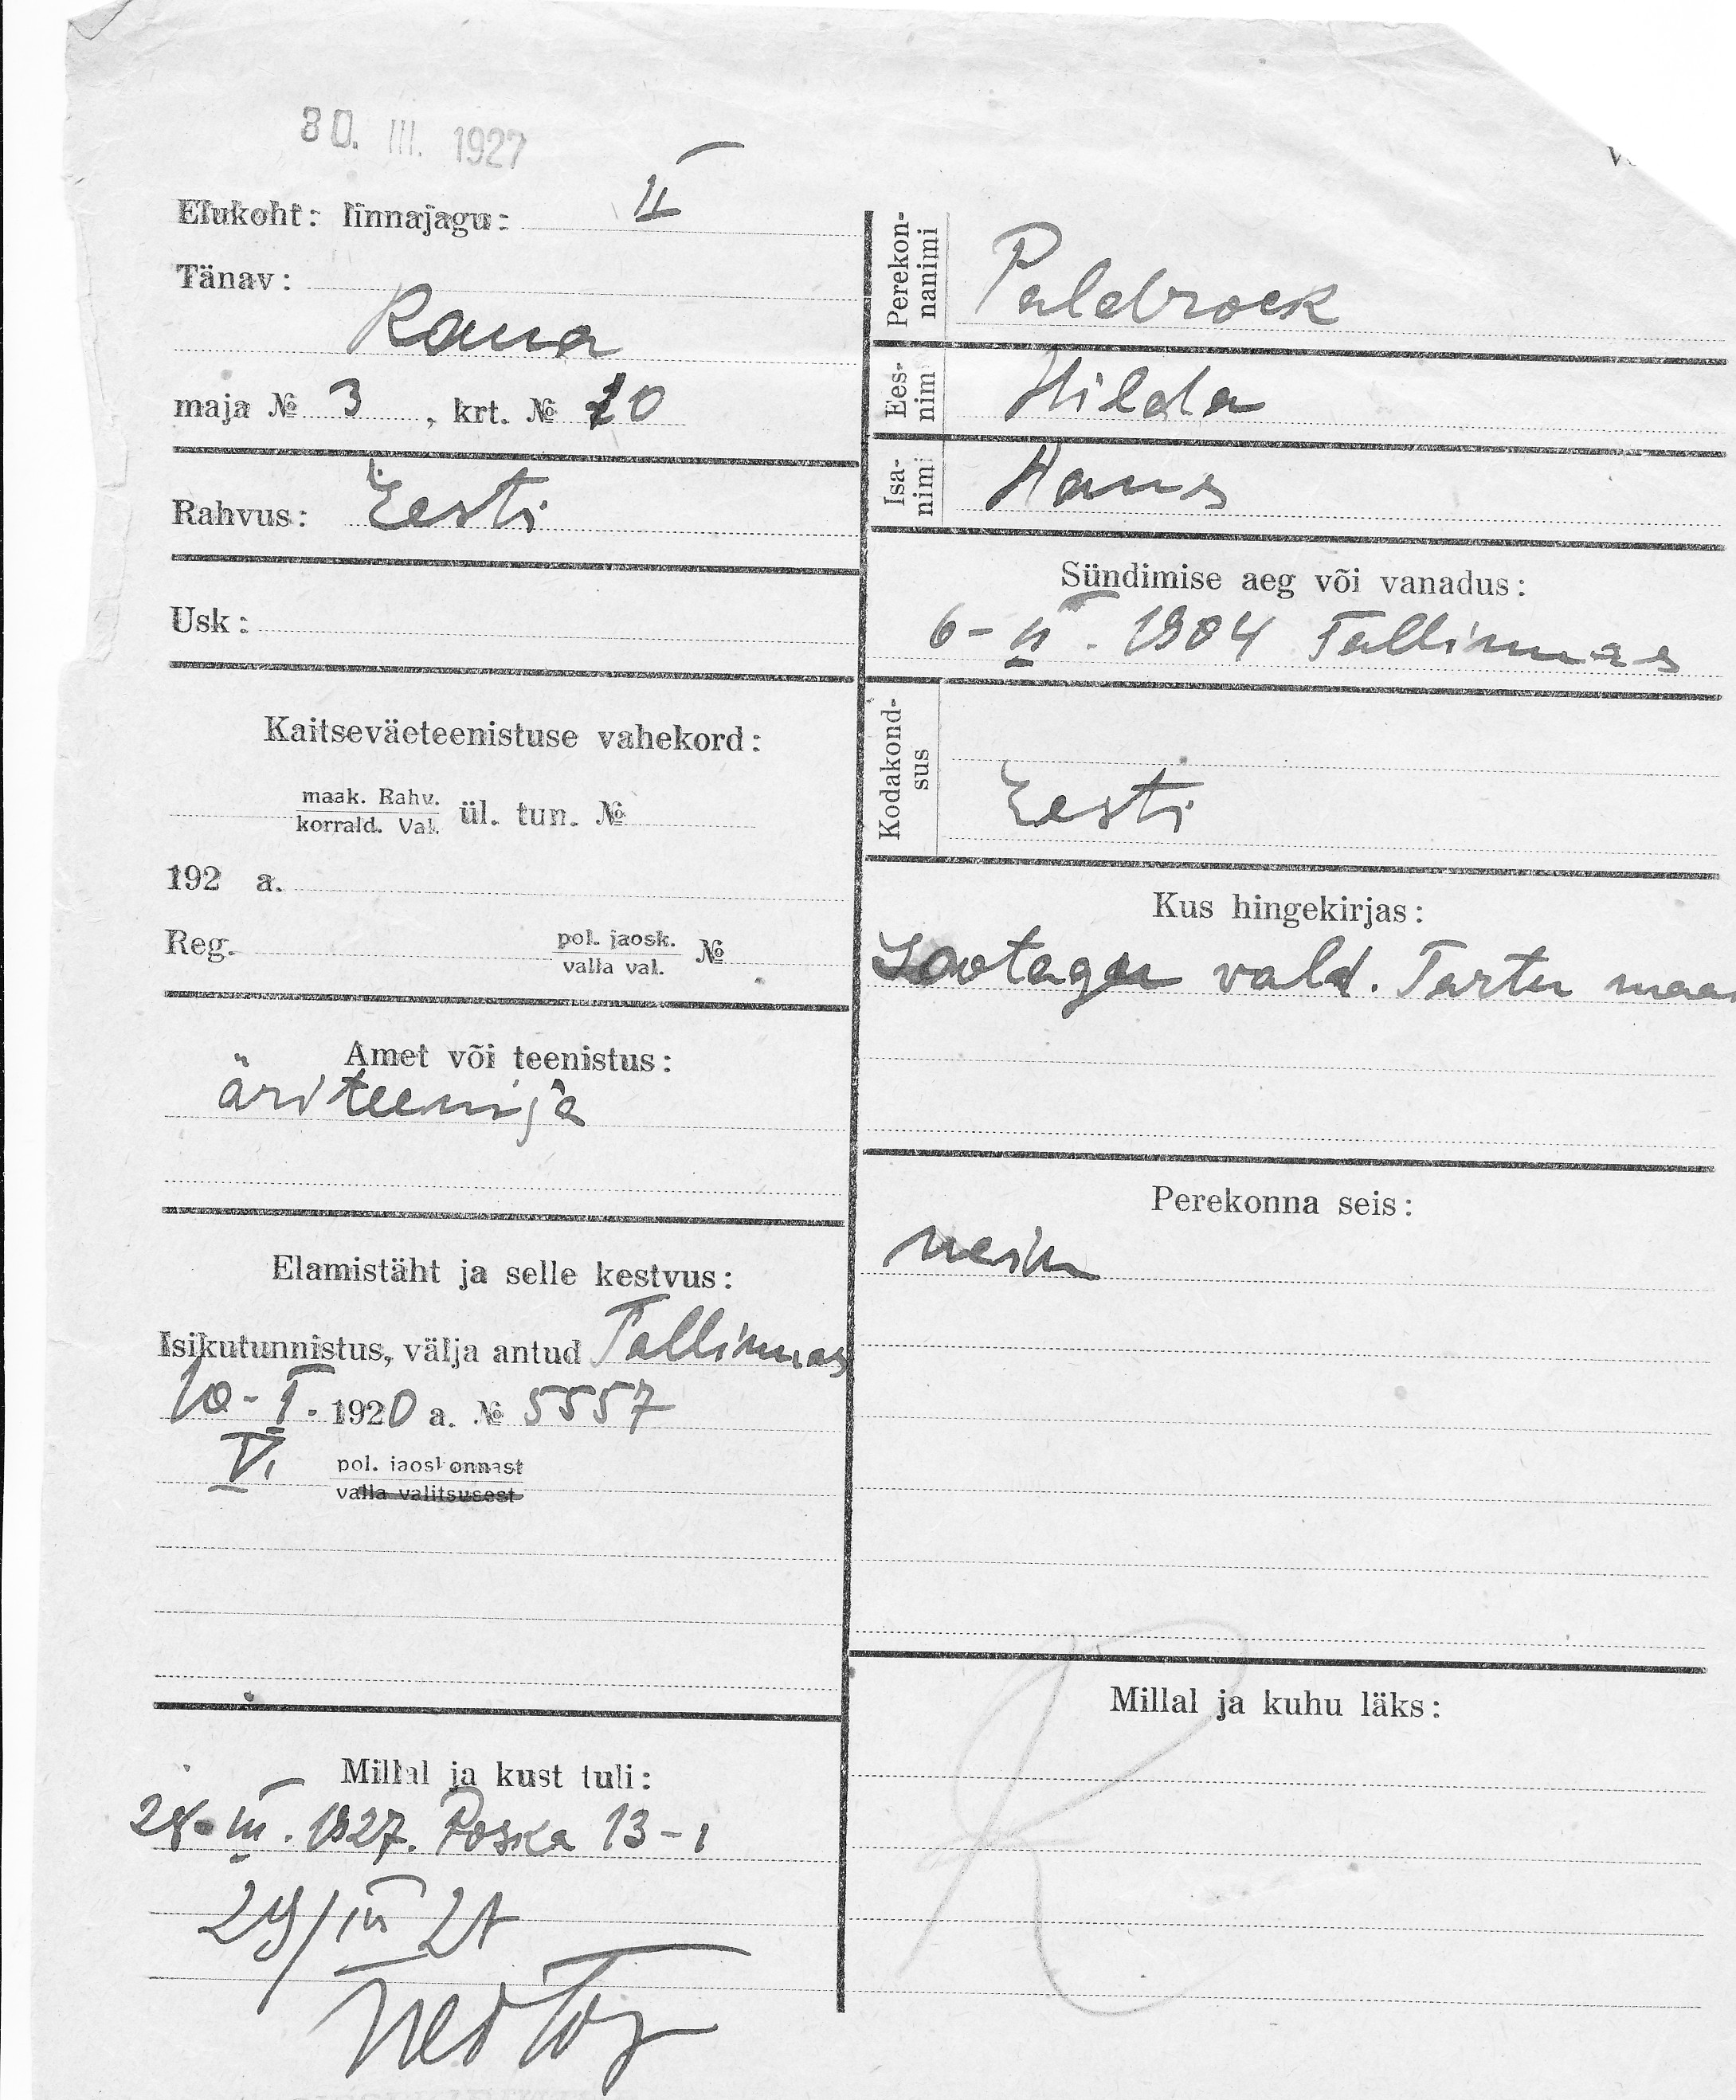 30. III. 1927
Elukoht: linnajagu: II
Tänav:
Raua
maja № 3, krt. № 10
Rahvus: Eesti
Usk:
Kaitseväeteenistuse vahekord:
maak. Rahv.
korrald. Val. ül. tun. №
192 a.
Reg. pol. jaosk. №
valla val.
Amet või teenistus:
äriteenija
Elamistäht ja selle kestvus:
Isikutunnistus, välja antud Tallinnas
10-I. 1920 a. № 5557
VI pol. jaoskonnast
valla valitsusest
Millal ja kust tuli:
28. III. 1927. Poska 13-1
29/III 27
Perekonnanimi Palebrock
Eesnimi Hilda
Isanimi Hans
Sündimise aeg või vanadus:
6-II. 1904 Tallinnas
Kodakondsus
Eesti
Kus hingekirjas:
Sootaga vald. Tartu maa
Perekonna seis:
neiu
Millal ja kuhu läks: